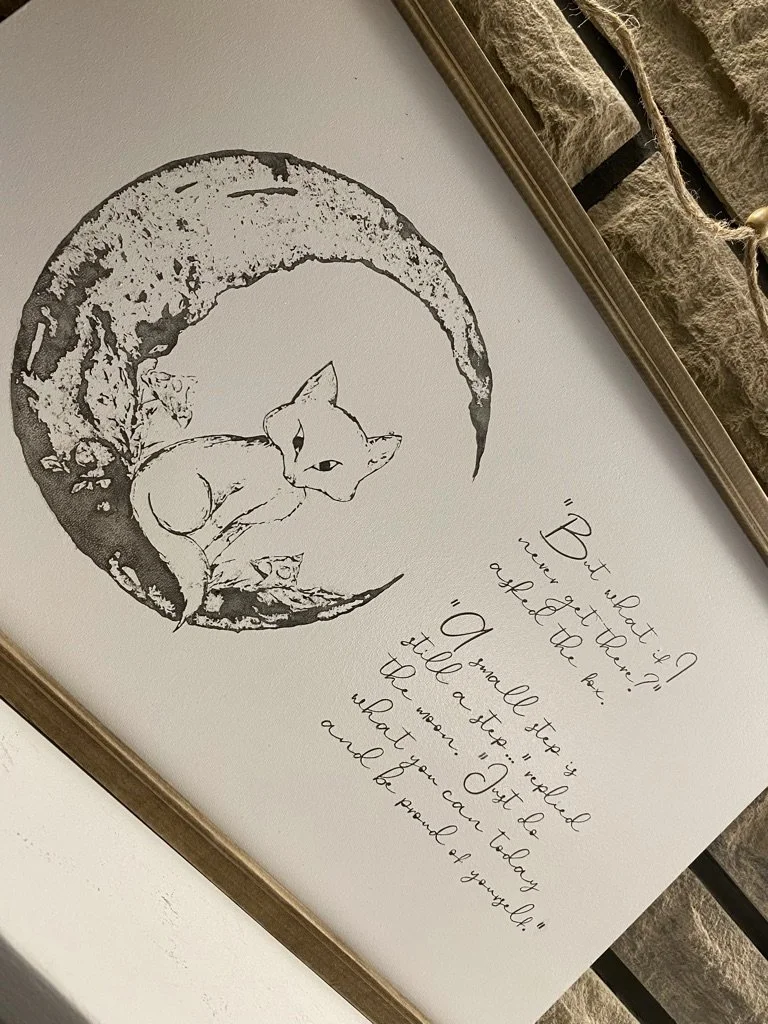 "But what if I
never get there?"
asked the fox.
"A small step is
still a step..." replied
the moon. "Just do
what you can today
and be proud of yourself."